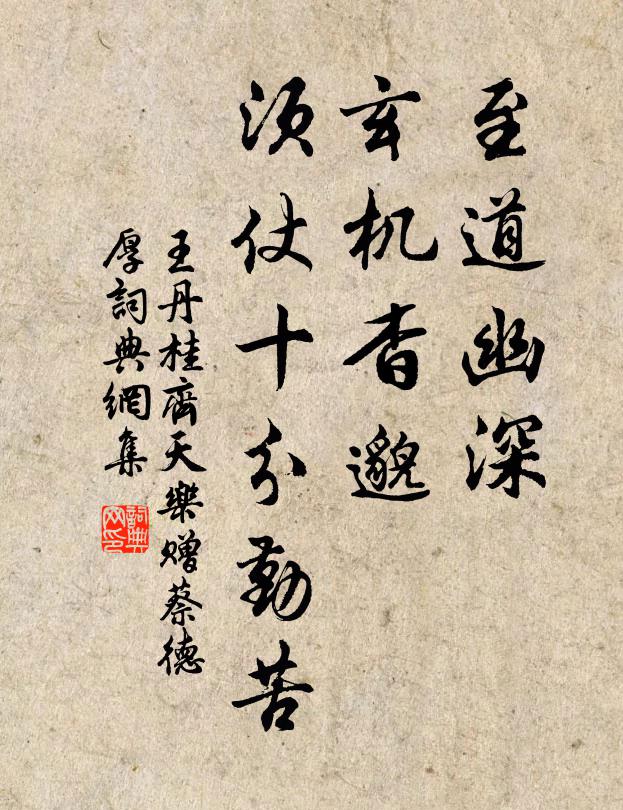 至道幽深
玄机杳邈
须仗十分勤苦
王丹桂齊天樂赠蔡德
厚詞典網集
詞典
网印